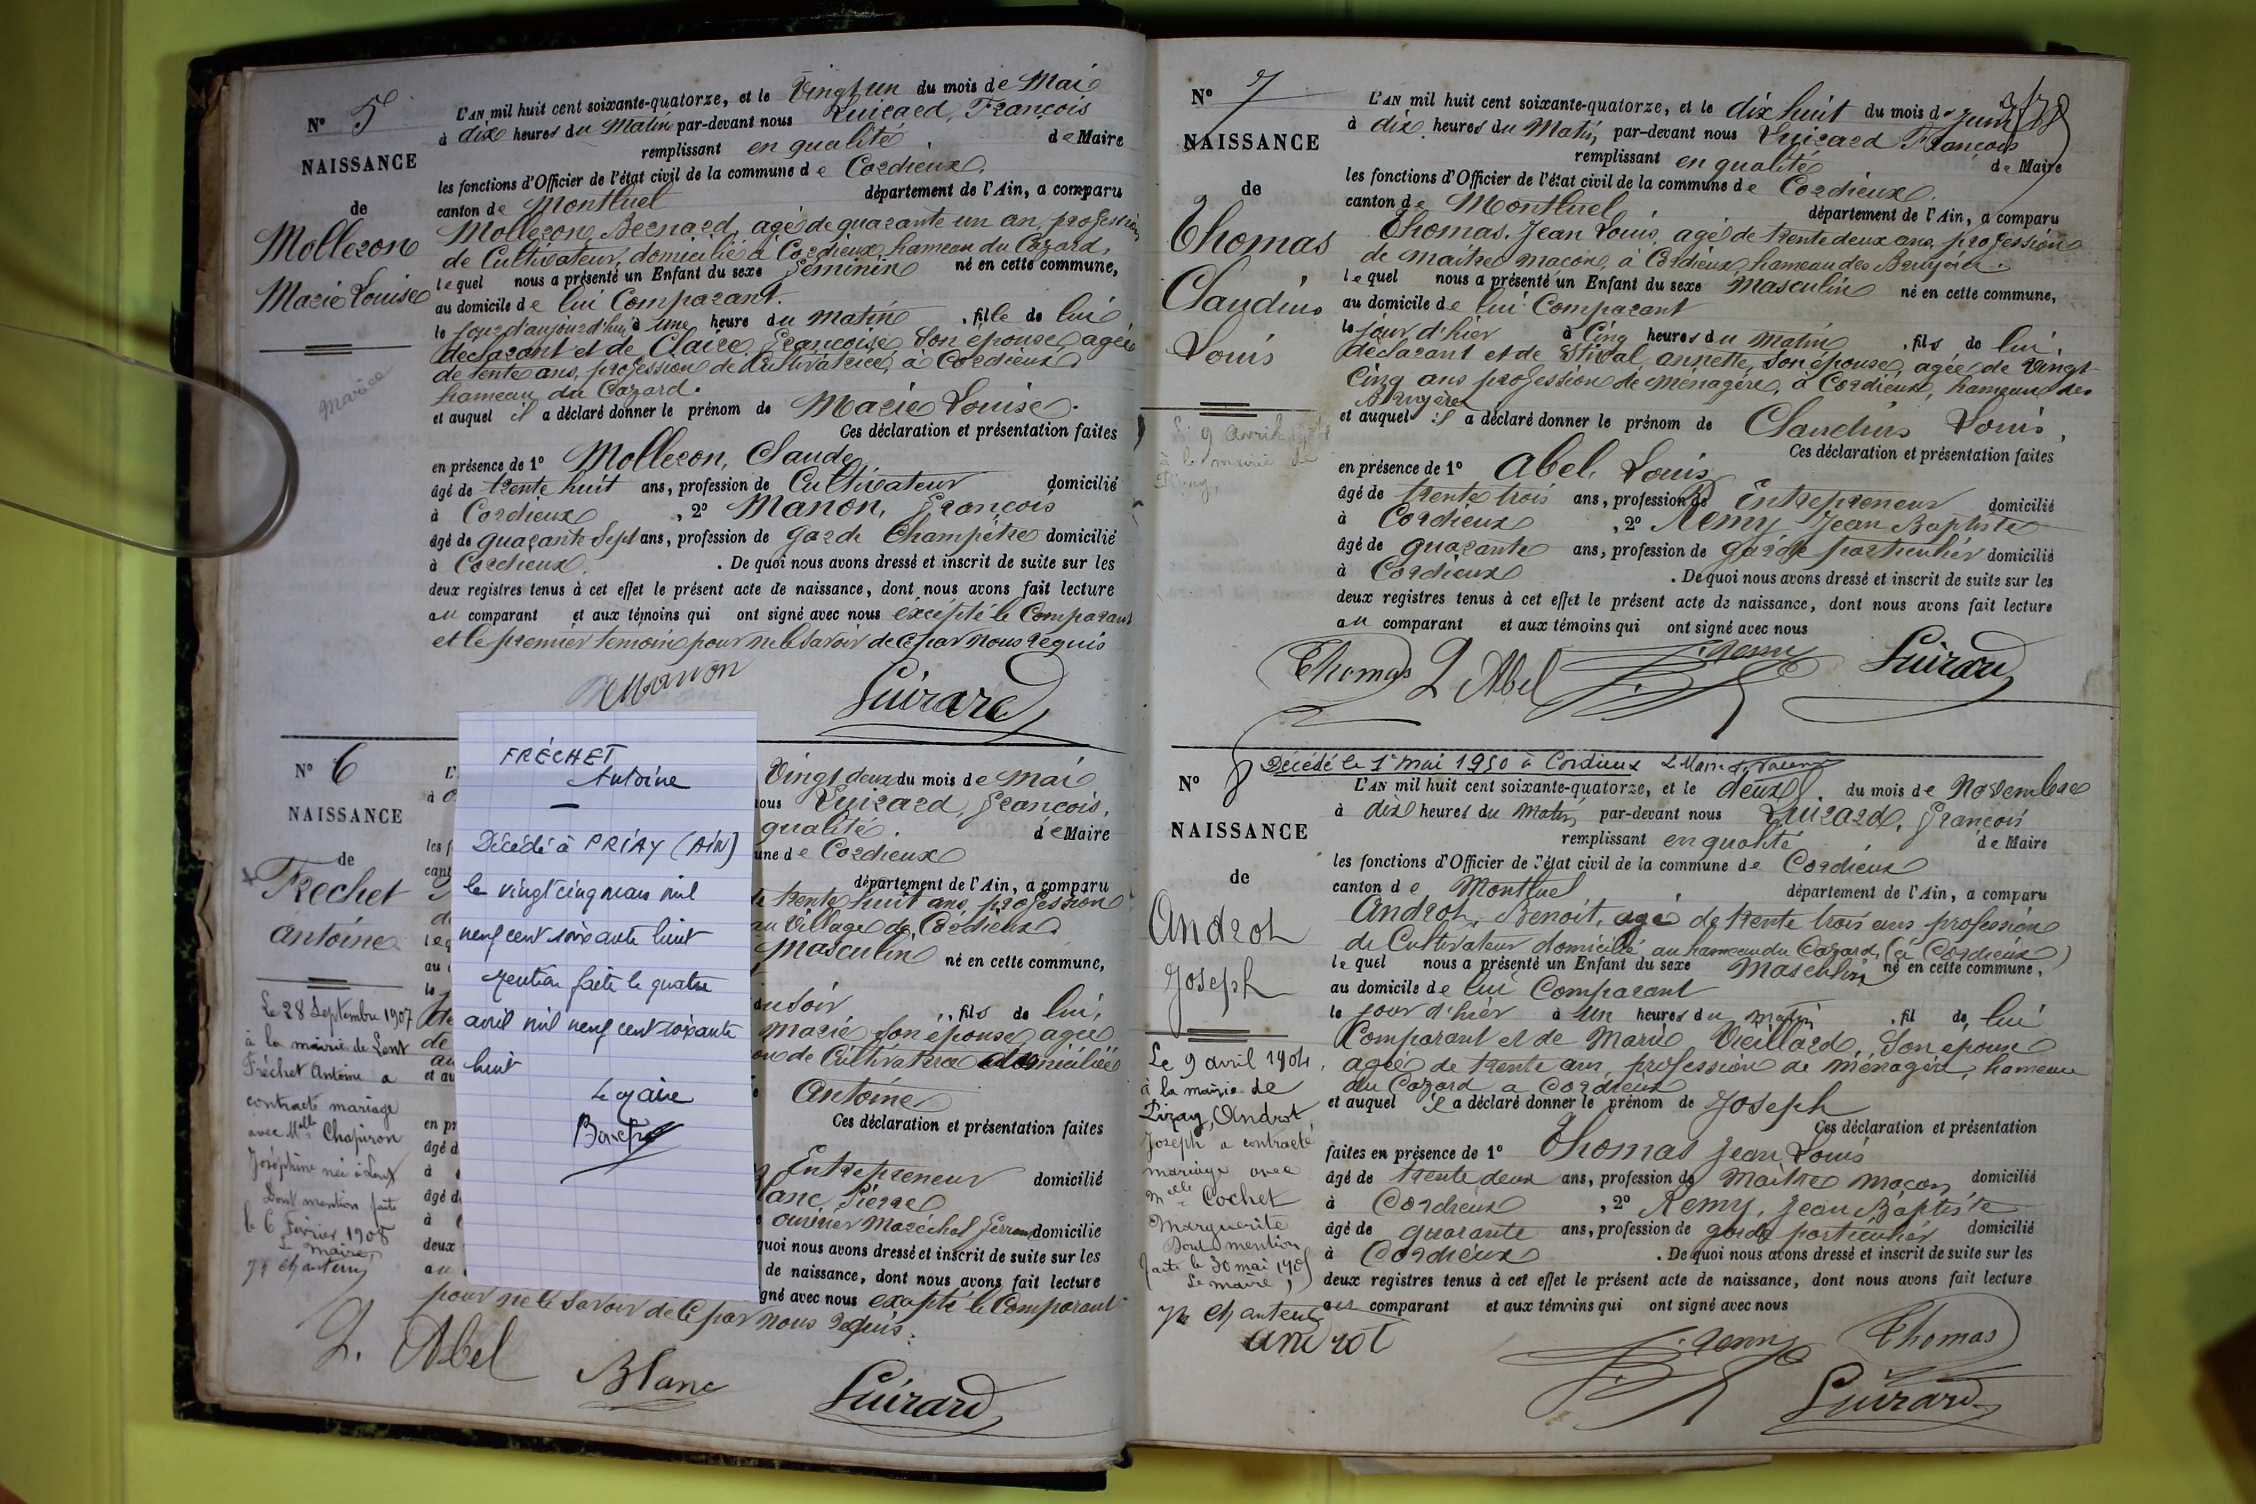 N° 5
NAISSANCE
de
Molleron
Marie Louise
Mariée
L'AN mil huit cent soixante-quatorze, et le Vingt un du mois de Mai
à dix heures du Matin par-devant nous Luizard, François
remplissant en qualité de Maire
les fonctions d'Officier de l'état civil de la commune de Cordieux.
canton de Montluel département de l'Ain, a comparu
Molleron Bernard, agé de quarante un an, profession
de Cultivateur, domicilié à Cordieux, hameau du Cazard,
lequel nous a présenté un Enfant du sexe féminin né en cette commune,
au domicile de lui Comparant.
le jour d'aujourd'hui à une heure du matin, fille de lui
déclarant et de Claire Françoise Son épouse agée
de trente ans, profession de Cultivatrice, à Cordieux
hameau du Cazard.
et auquel il a déclaré donner le prénom de Marie Louise.
Ces déclaration et présentation faites
en présence de 1° Molleron, Claude
âgé de trente huit ans, profession de Cultivateur domicilié
à Cordieux, 2° Manon, François
âgé de quarante Sept ans, profession de garde Champêtre domicilié
à Cordieux. De quoi nous avons dressé et inscrit de suite sur les
deux registres tenus à cet effet le présent acte de naissance, dont nous avons fait lecture
au comparant et aux témoins qui ont signé avec nous excépté le Comparant
et le premier temoin pour ne le Savoir de ce par nous requis
Manon
Luizard
N° 6
NAISSANCE
de
Frechet
Antoine
Le 28 Septembre 1907
à la mairie de Lent
Fréchet Antoine a
contracté mariage
avec Melle Chapiron
Joséphine née à Lent
Dont mention faite
le 6 Février 1908
Le maire,
FRÉCHET
Antoine
Décédé à PRIAY (AIN)
le vingt cinq mars mil
neuf cent soixante huit
Mention faite le quatre
avril mil neuf cent soixante
huit
Le Maire
Vingt deux du mois de Mai
nous Luizard, François,
qualité. de Maire
une de Cordieux
département de l'Ain, a comparu
de trente huit ans, profession
au Village de Cordieux
Masculin né en cette commune,
du Soir, fils de lui,
Marie Son épouse agée
on de Cultivatrice domiciliée
Antoine
Ces déclaration et présentation faites
Entrepreneur domicilié
lanc, Pierre
ouvrier Maréchal ferrant domicilié
quoi nous avons dressé et inscrit de suite sur les
de naissance, dont nous avons fait lecture
gné avec nous excepté le Comparant
pour ne le Savoir de ce par nous requis.
L. Abel
Blanc
Luizard
N° 7
NAISSANCE
de
Thomas
Claudius
Louis
L'AN mil huit cent soixante-quatorze, et le dix huit du mois de Juin
à dix heures du Matin, par-devant nous Luizard François
remplissant en qualité de Maire
les fonctions d'Officier de l'état civil de la commune de Cordieux.
canton de Montluel département de l'Ain, a comparu
Thomas, Jean Louis, agé de trente deux ans, profession
de maître maçon, à Cordieux hameau des Bruyères.
lequel nous a présenté un Enfant du sexe Masculin né en cette commune,
au domicile de lui Comparant
le jour d'hier à Cinq heures du Matin, fils de lui,
déclarant et de Stival, annette, Son épouse, agée de Vingt-
Cinq ans profession de ménagère, à Cordieux, hameau des
Bruyères
et auquel il a déclaré donner le prénom de Claudius Louis,
Ces déclaration et présentation faites
en présence de 1° Abel, Louis
âgé de trente trois ans, profession de Entrepreneur domicilié
à Cordieux, 2° Remy Jean Baptiste
âgé de quarante ans, profession de garde particulier domicilié
à Cordieux. De quoi nous avons dressé et inscrit de suite sur les
deux registres tenus à cet effet le présent acte de naissance, dont nous avons fait lecture
au comparant et aux témoins qui ont signé avec nous
Thomas L Abel Remy Luizard
N° 8
Décédé le 1er mai 1950 à Cordieux Le Maire
NAISSANCE
de
Androt
Joseph
Le 9 avril 1904,
à la mairie de
Pizay, Androt
Joseph a contracté
mariage avec
Melle Cochet
Marguerite
Dont mention
faite le 30 mai 1905
Le maire,
L'AN mil huit cent soixante-quatorze, et le deux du mois de Novembre
à dix heures du Matin, par-devant nous Luizard, François
remplissant en qualité de Maire
les fonctions d'Officier de l'état civil de la commune de Cordieux
canton de Montluel département de l'Ain, a comparu
Androt, Benoit, agé de trente trois ans profession
de Cultivateur domicilié au hameau du Cazard (à Cordieux)
lequel nous a présenté un Enfant du sexe Masculin né en cette commune,
au domicile de lui Comparant
le jour d'hier à un heures du matin, fil de lui
Comparant et de Marie Vieillard, Son épouse
agée de trente ans, profession de ménagère, hameau
du Cazard a Cordieux
et auquel il a déclaré donner le prénom de Joseph
Ces déclaration et présentation
faites en présence de 1° Thomas Jean Louis
âgé de trente deux ans, profession de Maître maçon domicilié
à Cordieux, 2° Remy, Jean Baptiste
âgé de quarante ans, profession de garde particulier domicilié
à Cordieux. De quoi nous avons dressé et inscrit de suite sur les
deux registres tenus à cet effet le présent acte de naissance, dont nous avons fait lecture
au comparant et aux témoins qui ont signé avec nous
androt
Remy Thomas
Luizard